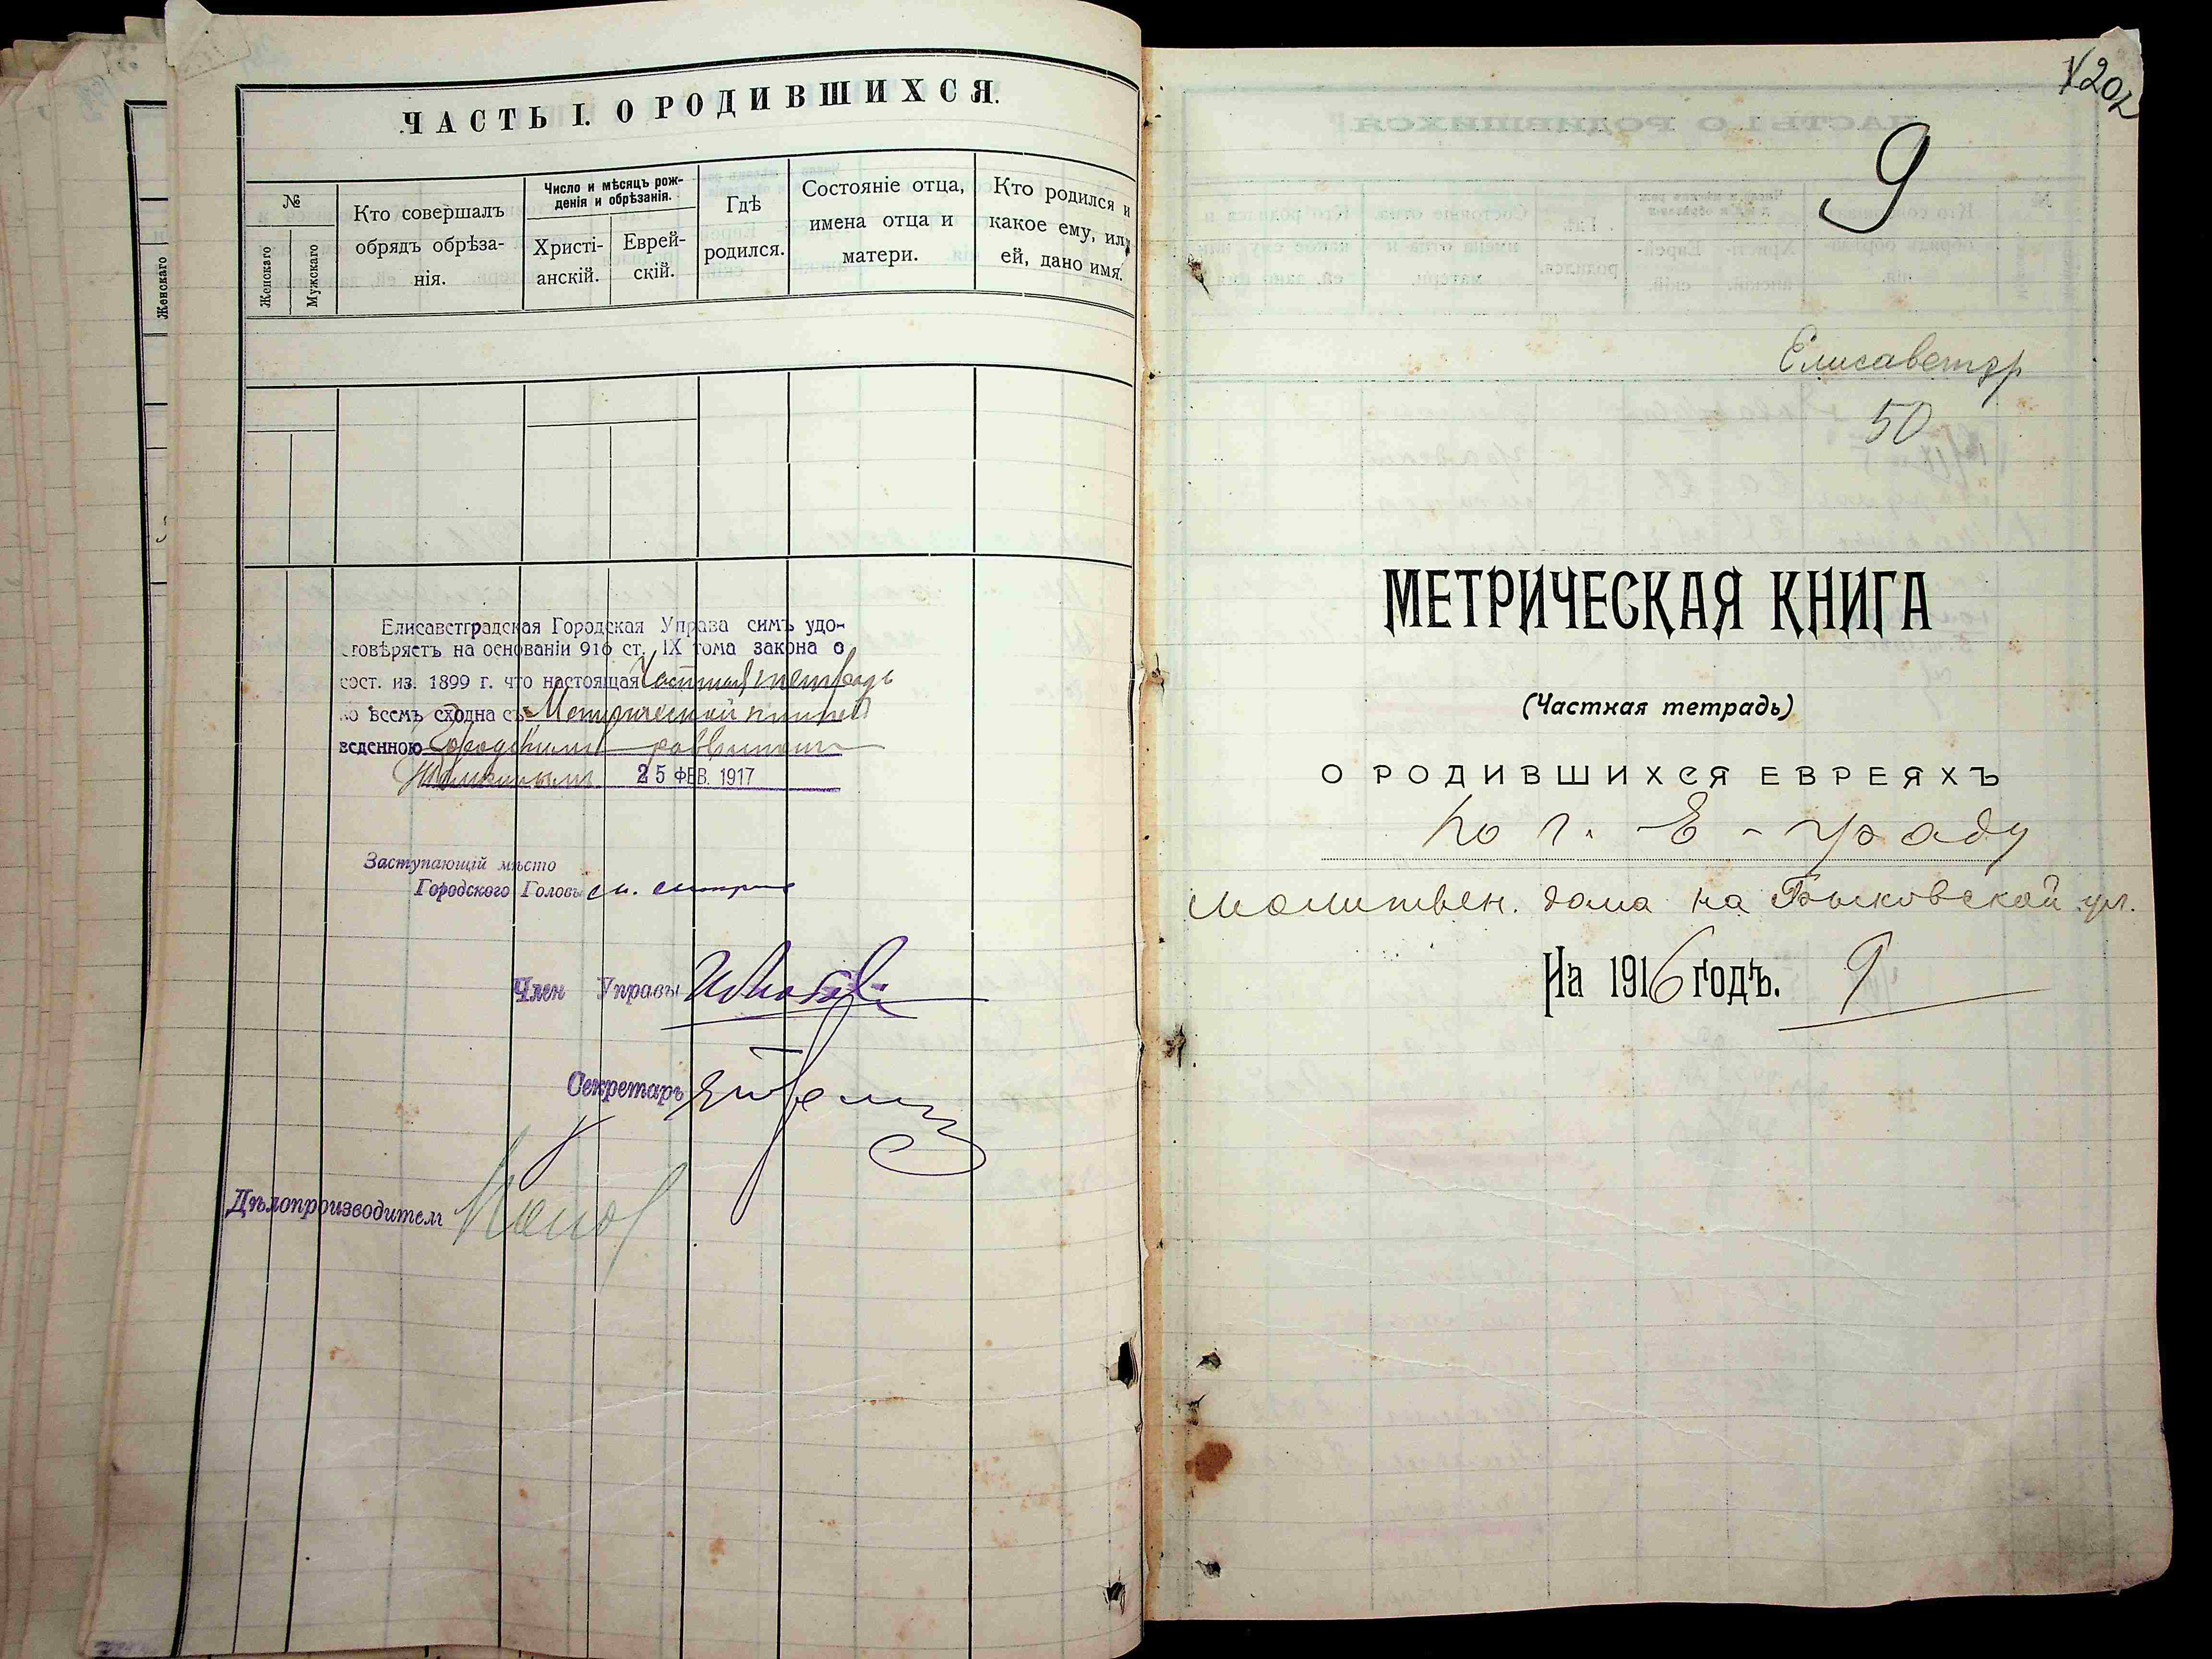 ЧАСТЬ I. О РОДИВШИХСЯ.
№
Женскаго
Мужскаго
Кто совершалъ
обрядъ обрѣза-
нія.
Число и мѣсяцъ рож-
денія и обрѣзанія.
Христі-
анскій.
Еврей-
скій.
Гдѣ
родился.
Состояніе отца,
имена отца и
матери.
Кто родился и
какое ему, или
ей, дано имя.
Женскаго
Елисаветградская Городская Управа симъ удо-
товѣряетъ на основаніи 916 ст. IX тома закона о
сост. из. 1899 г. что настоящая Частная тетрадь
во всемъ сходна съ Метрической книгой
веденною Городскимъ раввиномъ
25 ФЕВ. 1917
Заступающій мѣсто
Городского Головы
Член Управы
Секретарь
Дѣлопроизводитель
9
Елисаветгр
50
МЕТРИЧЕСКАЯ КНИГА
(Частная тетрадь)
О РОДИВШИХСЯ ЕВРЕЯХЪ
по г. Е-граду
молитвен. дома на Быковской ул.
На 1916 годъ. 9